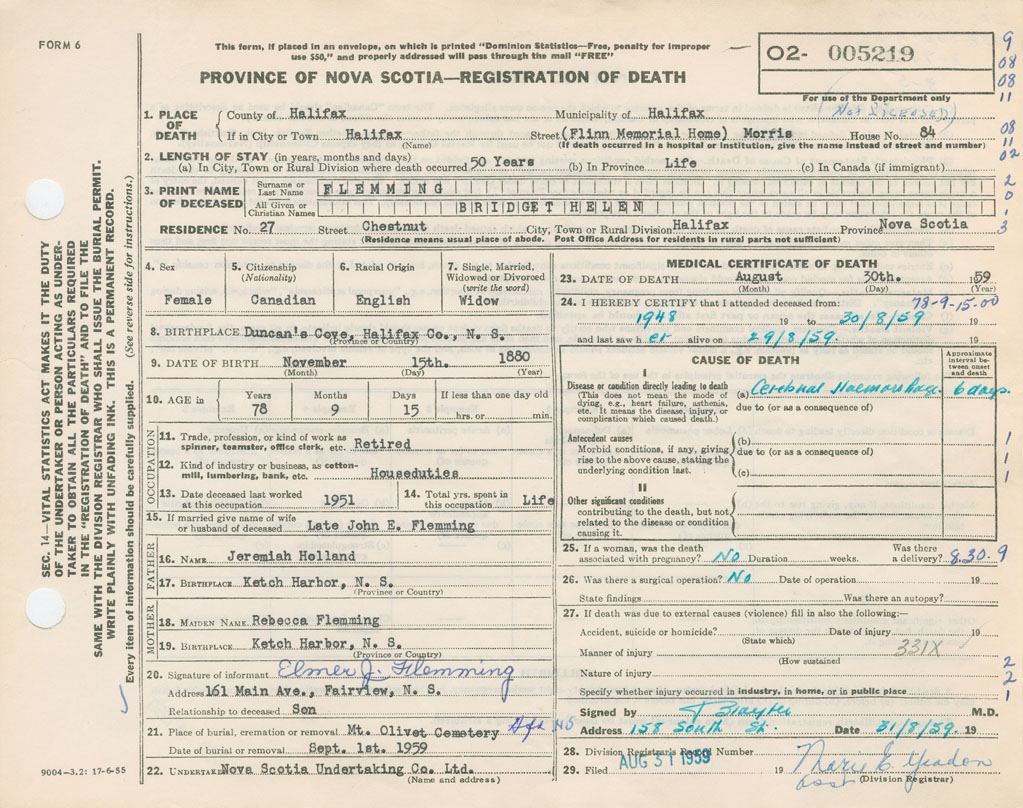 FORM 6
This form, if placed in an envelope, on which is printed "Dominion Statistics—Free, penalty for improper
use $50," and properly addressed will pass through the mail "FREE"
PROVINCE OF NOVA SCOTIA—REGISTRATION OF DEATH
02- 005219
For use of the Department only
9
08
08
11
08
11
02
2
0
1
3
SEC. 14—VITAL STATISTICS ACT MAKES IT THE DUTY
OF THE UNDERTAKER OR PERSON ACTING AS UNDER-
TAKER TO OBTAIN ALL THE PARTICULARS REQUIRED
IN THE "REGISTRATION OF DEATH" AND TO FILE THE
SAME WITH THE DIVISION REGISTRAR WHO SHALL ISSUE THE BURIAL PERMIT.
WRITE PLAINLY WITH UNFADING INK. THIS IS A PERMANENT RECORD.
Every item of information should be carefully supplied. (See reverse side for instructions.)
1. PLACE OF DEATH
County of Halifax Municipality of Halifax (Not Licensed)
If in City or Town Halifax Street (Flinn Memorial Home) Morris House No. 84
(Name) (If death occurred in a hospital or institution, give the name instead of street and number)
2. LENGTH OF STAY (in years, months and days)
(a) In City, Town or Rural Division where death occurred 50 Years (b) In Province Life (c) In Canada (if immigrant)
3. PRINT NAME OF DECEASED
Surname or Last Name FLEMMING
All Given or Christian Names BRIDGET HELEN
RESIDENCE No. 27 Street Chestnut City, Town or Rural Division Halifax Province Nova Scotia
(Residence means usual place of abode. Post Office Address for residents in rural parts not sufficient)
4. Sex
Female
5. Citizenship (Nationality)
Canadian
6. Racial Origin
English
7. Single, Married, Widowed or Divorced (write the word)
Widow
8. BIRTHPLACE Duncan's Cove, Halifax Co., N. S.
(Province or Country)
9. DATE OF BIRTH November 15th. 1880
(Month) (Day) (Year)
10. AGE in
Years 78
Months 9
Days 15
If less than one day old
hrs. or min.
OCCUPATION
11. Trade, profession, or kind of work as spinner, teamster, office clerk, etc. Retired
12. Kind of industry or business, as cotton-mill, lumbering, bank, etc. Houseduties
13. Date deceased last worked at this occupation 1951
14. Total yrs. spent in this occupation Life
15. If married give name of wife or husband of deceased Late John E. Flemming
FATHER
16. NAME Jeremiah Holland
17. BIRTHPLACE Ketch Harbor, N. S.
(Province or Country)
MOTHER
18. MAIDEN NAME Rebecca Flemming
19. BIRTHPLACE Ketch Harbor, N. S.
(Province or Country)
20. Signature of informant Elmer J. Flemming
Address 161 Main Ave., Fairview, N. S.
Relationship to deceased Son
21. Place of burial, cremation or removal Mt. Olivet Cemetery Hfx NS
Date of burial or removal Sept. 1st. 1959
22. UNDERTAKER Nova Scotia Undertaking Co. Ltd.
(Name and address)
9004-3.2: 17-6-55
MEDICAL CERTIFICATE OF DEATH
23. DATE OF DEATH August 30th. 1959
(Month) (Day) (Year)
24. I HEREBY CERTIFY that I attended deceased from: 78-9-15-00
1948 19 to 30/8/59 19
and last saw her alive on 29/8/59. 19
CAUSE OF DEATH
Approximate interval between onset and death
I
Disease or condition directly leading to death (a) Cerebral Haemorrhage 6 days.
(This does not mean the mode of dying, e.g., heart failure, asthenia, etc. It means the disease, injury, or complication which caused death.)
due to (or as a consequence of)
Antecedent causes
Morbid conditions, if any, giving rise to the above cause, stating the underlying condition last.
(b)
due to (or as a consequence of)
(c)
1
1
1
II
Other significant conditions
contributing to the death, but not related to the disease or condition causing it.
25. If a woman, was the death associated with pregnancy? No Duration weeks. Was there a delivery? 8.30.9
26. Was there a surgical operation? No Date of operation 19
State findings Was there an autopsy?
27. If death was due to external causes (violence) fill in also the following:—
Accident, suicide or homicide? Date of injury 19
(State which)
Manner of injury 331X
(How sustained
Nature of injury
2
2
1
Specify whether injury occurred in industry, in home, or in public place
Signed by M.D.
Address 158 South St. Date 31/8/59. 19
28. Division Registrar's Record Number
29. Filed AUG 31 1959 19 Marie E. Yeadon
asst (Division Registrar)